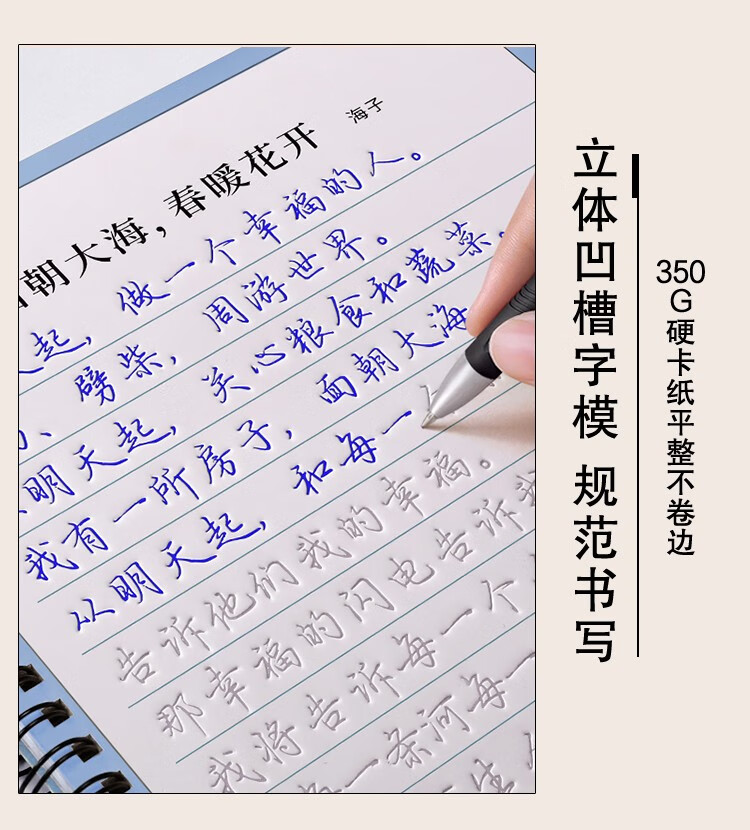 朝大海，春暖花开
海子
起，做一个幸福的人。
、劈柴，周游世界。
明天起，关心粮食和蔬菜。
我有一所房子，面朝大海
从明天起，和每一
告诉他们我的幸福。
那幸福的闪电告诉我
我将告诉每一个
一条河每一
生
立体凹槽字模 规范书写
350G硬卡纸平整不卷边